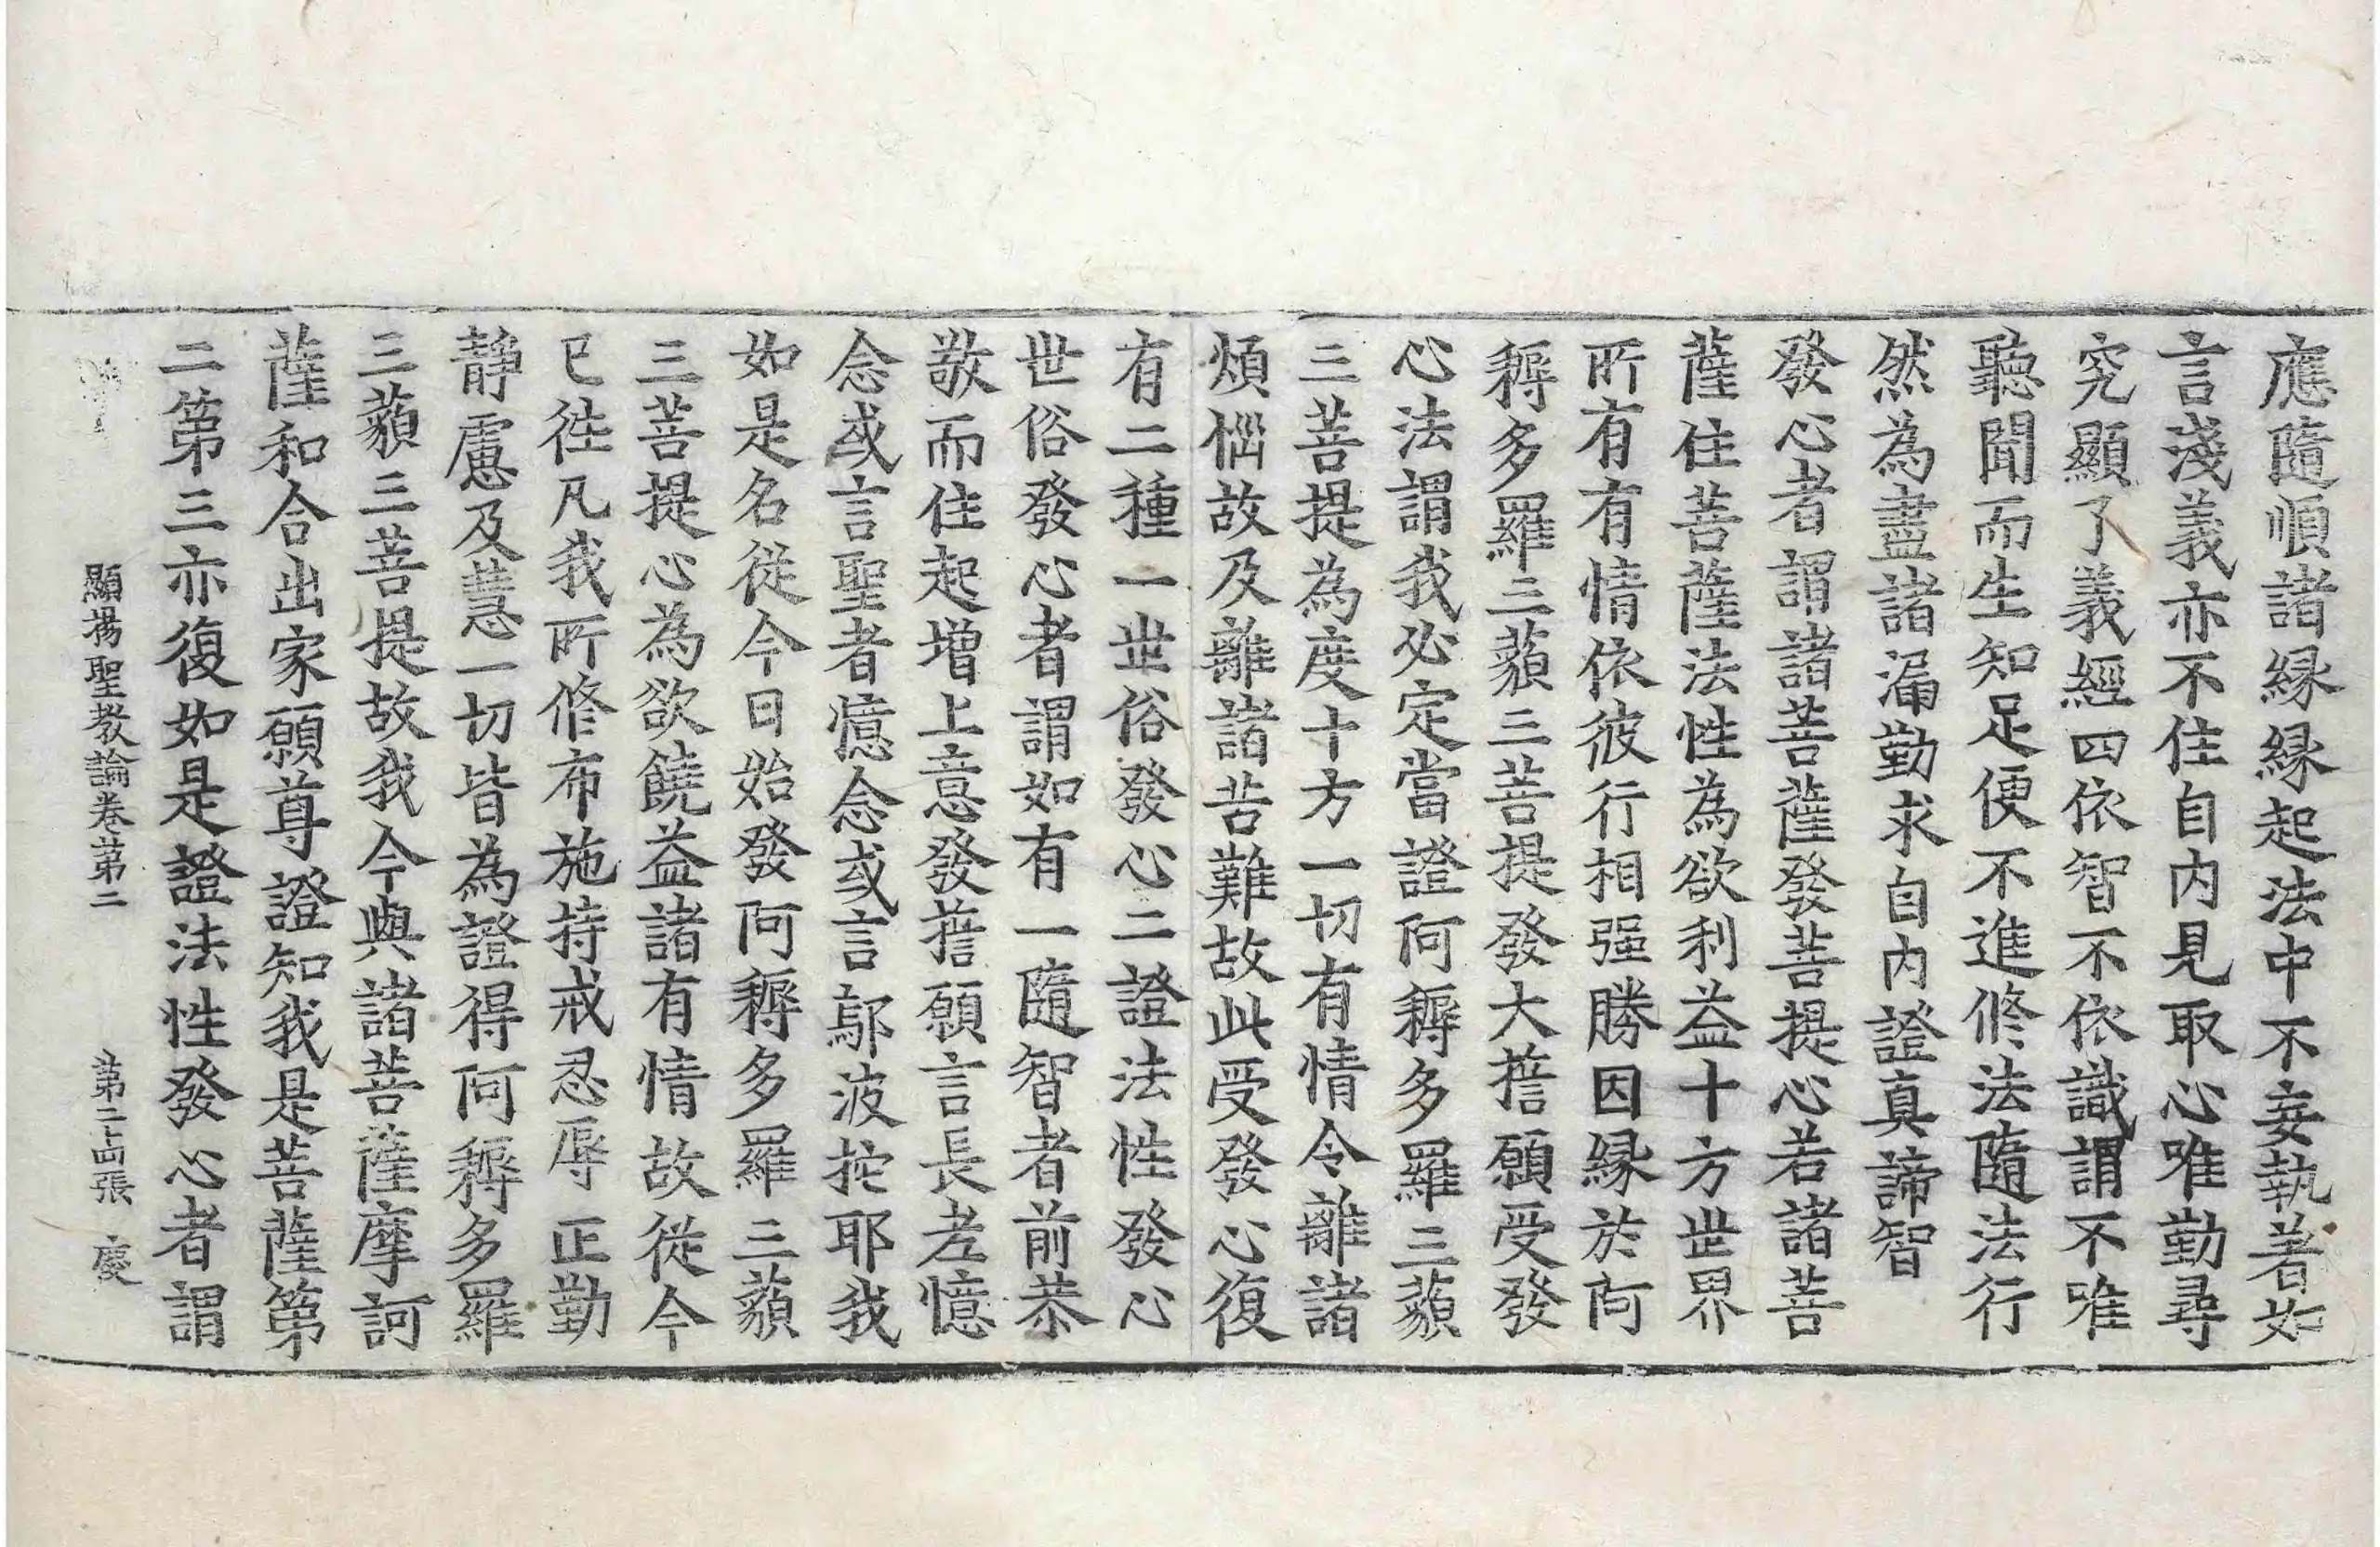 應隨順諸緣緣起法中不妄執著如
言淺義亦不住自內見取心唯勤尋
究顯了義經四依智不依識謂不唯
聽聞而生知足便不進修法隨法行
然為盡諸漏勤求自內證真諦智
發心者謂諸菩薩發菩提心若諸菩
薩住菩薩法性為欲利益十方世界
所有有情依彼行相强勝因緣於阿
耨多羅三藐三菩提發大誓願受發
心法謂我必定當證阿耨多羅三藐
三菩提為度十方一切有情令離諸
煩惱故及離諸苦難故此受發心復
有二種一世俗發心二證法性發心
世俗發心者謂如有一隨智者前恭
敬而住起增上意發誓願言長老憶
念或言聖者憶念或言鄔波拕耶我
如是名從今日始發阿耨多羅三藐
三菩提心為欲饒益諸有情故從今
已往凡我所修布施持戒忍辱正勤
靜慮及慧一切皆為證得阿耨多羅
三藐三菩提故我今與諸菩薩摩訶
薩和合出家願尊證知我是菩薩第
二第三亦復如是證法性發心者謂
顯揚聖教論卷第二 第二十四張 慶